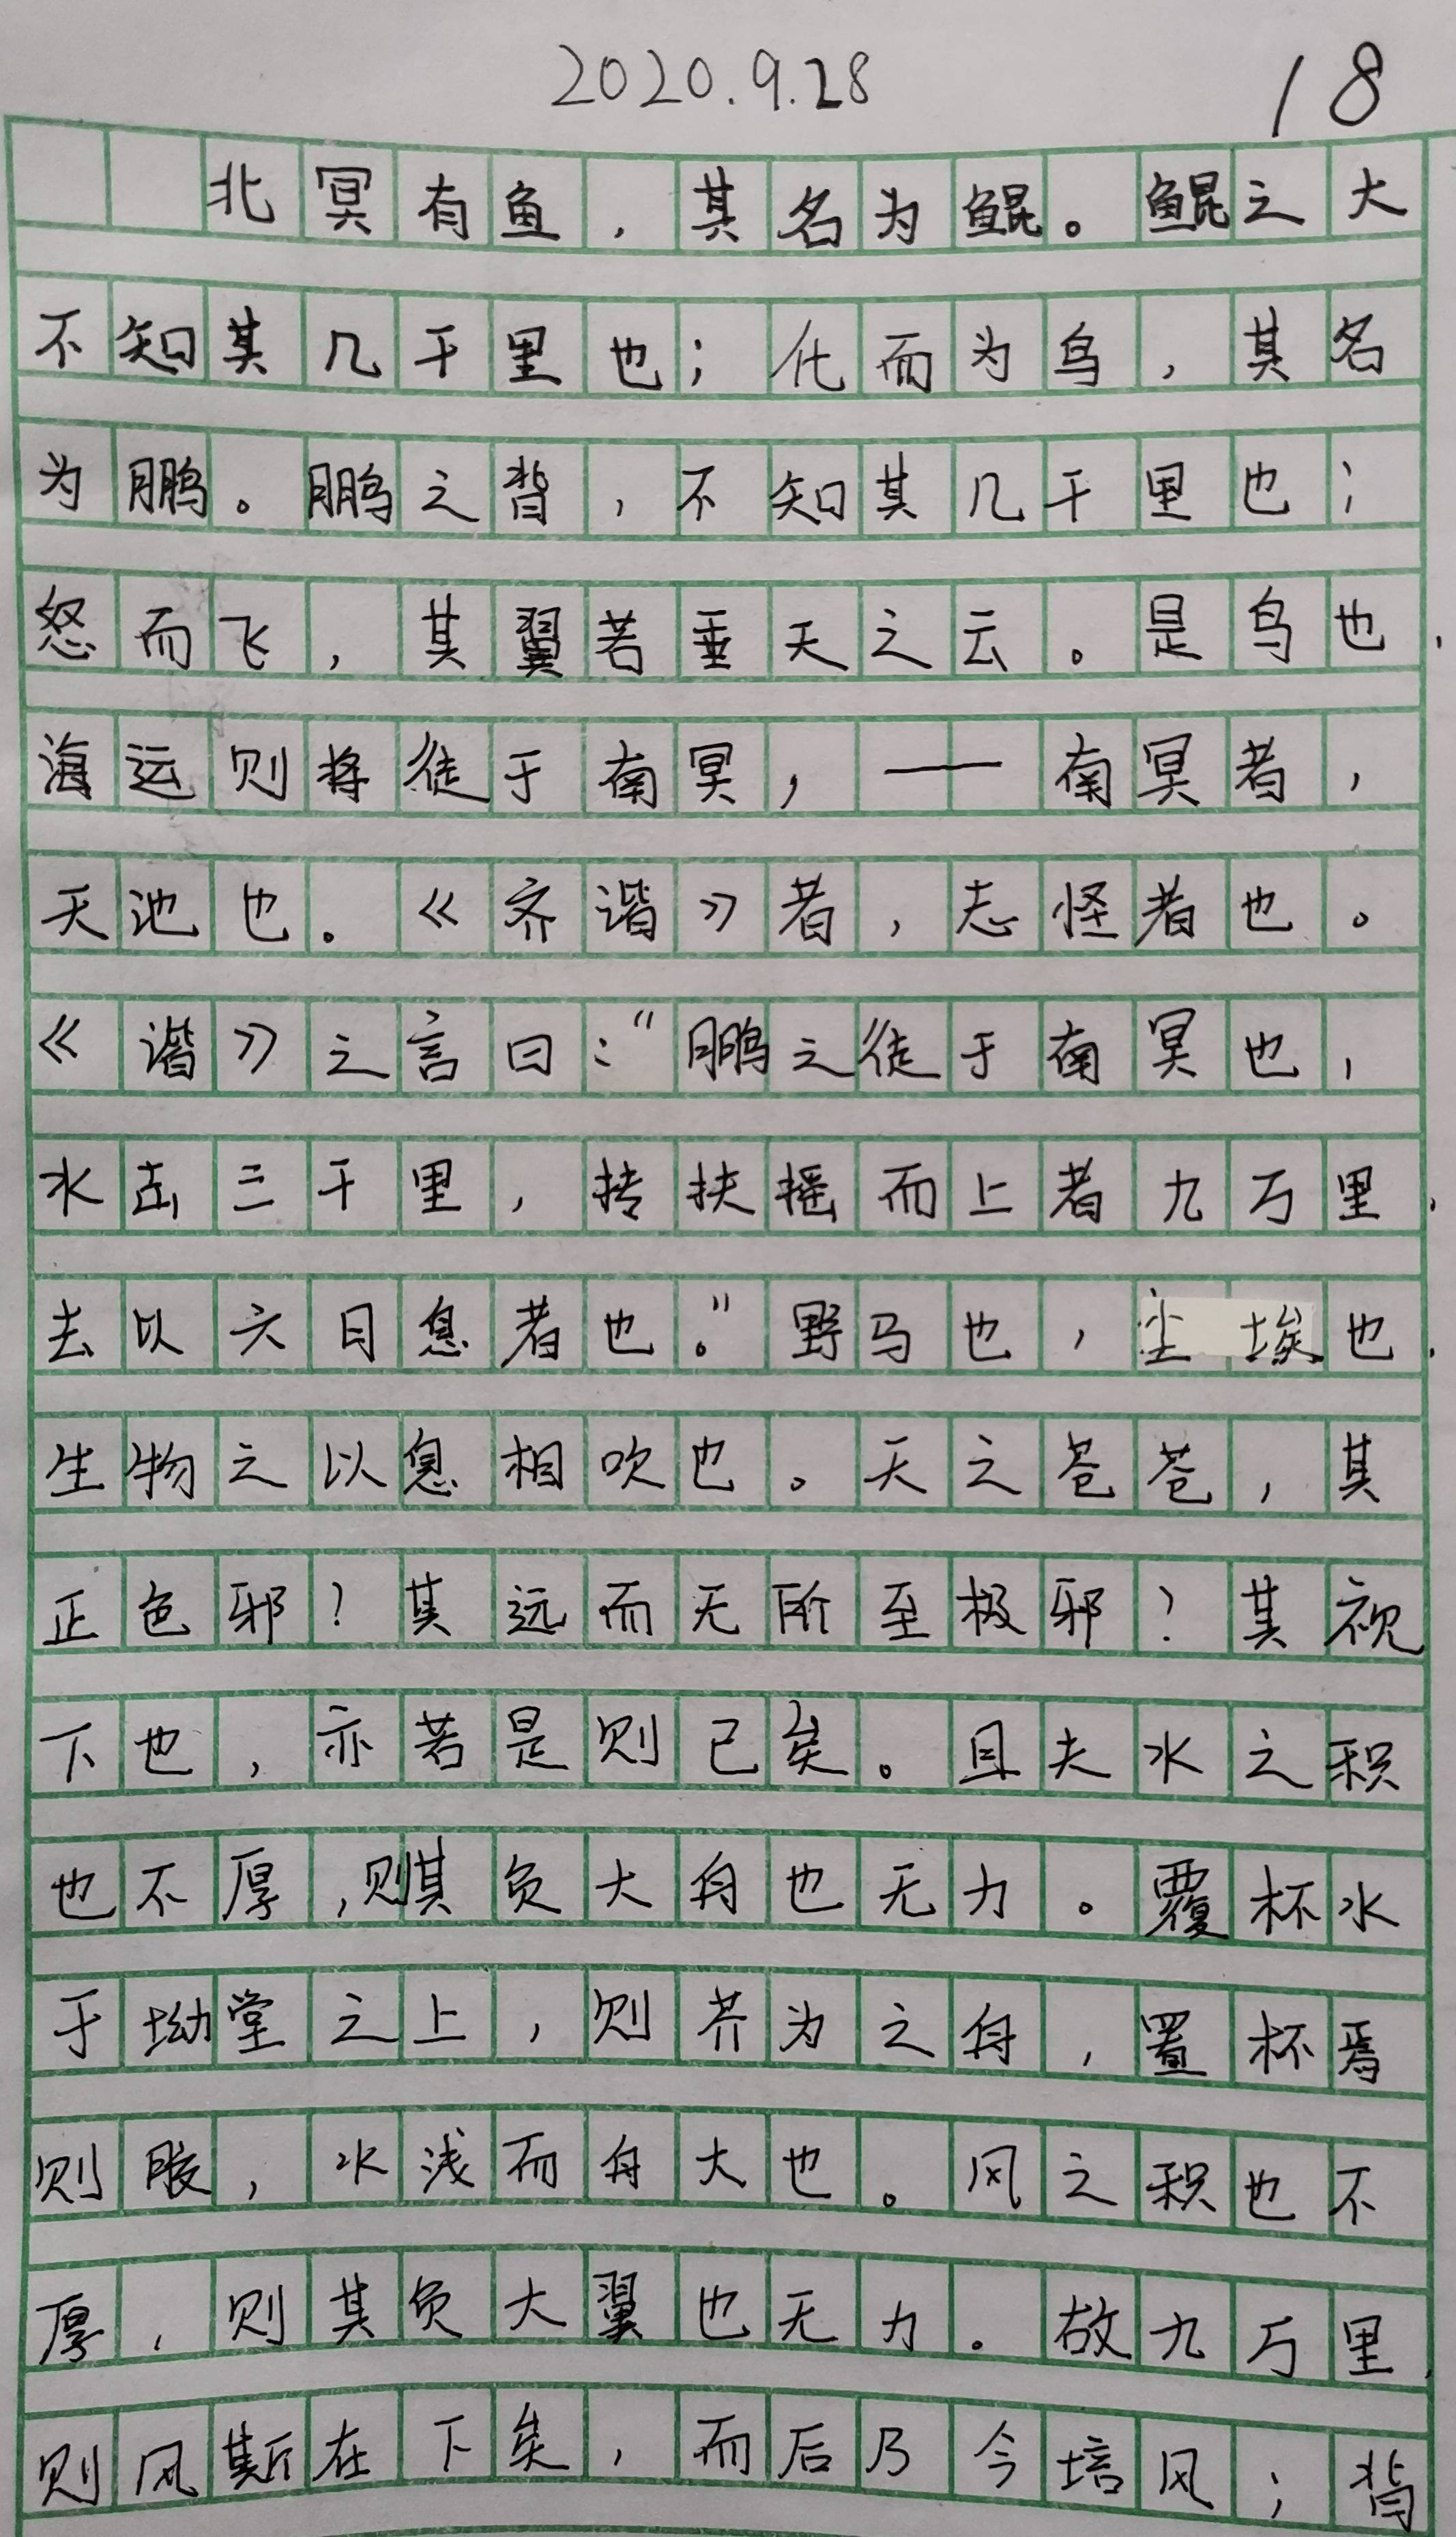 2020.9.28 18
北冥有鱼，其名为鲲。鲲之大
不知其几千里也；化而为鸟，其名
为鹏。鹏之背，不知其几千里也；
怒而飞，其翼若垂天之云。是鸟也，
海运则将徙于南冥，——南冥者，
天池也。《齐谐》者，志怪者也。
《谐》之言曰：“鹏之徙于南冥也，
水击三千里，抟扶摇而上者九万里，
去以六日息者也。”野马也，尘埃也，
生物之以息相吹也。天之苍苍，其
正色邪？其远而无所至极邪？其视
下也，亦若是则已矣。且夫水之积
也不厚，则其负大舟也无力。覆杯水
于坳堂之上，则芥为之舟，置杯焉
则胶，水浅而舟大也。风之积也不
厚，则其负大翼也无力。故九万里，
则风斯在下矣，而后乃今培风；背